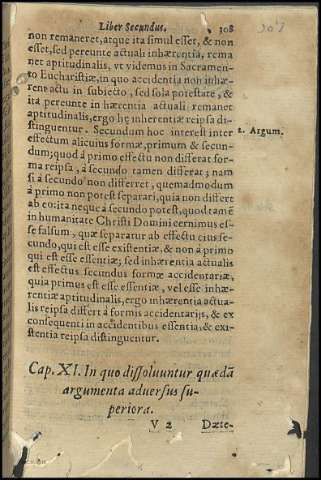 Liber Secundus. 308
non remaneret, atque ita simul esset, & non
esset, sed pereunte actuali inhærentia, rema
net aptitudinalis, vt videmus in Sacramen-
to Eucharistiæ, in quo accidentia non inhæ-
rent actu in subiecto, sed sola potestate, &
ita pereunte in hærentia actuali remanet
aptitudinalis, ergo hę inhærentiæ reipsa di-
stinguentur. Secundum hoc interest inter
2. Argum.
effectum alicuius formæ, primum & secun-
dum; quod à primo effectu non differat for-
ma reipsa, à secundo tamen differat; nam
si à secundo non differret, quemadmodum
à primo non potest separari, quia non differt
ab eo: ita neque à secundo potest, quod tamẽ
in humanitate Christi Domini cernimus es-
se falsum, quæ separatur ab effectu eius se-
cundo, qui est esse existentiæ, & non à primo
qui est esse essentiæ; sed inhærentia actualis
est effectus secundus formæ accidentariæ,
quia primus est esse essentiæ, vel esse inhæ-
rentiæ aptitudinalis, ergo inhærentia actua-
lis reipsa differt à formis accidentarijs, & ex
consequenti in accidentibus essentia, & exi-
stentia reipsa distinguentur.
Cap. XI. In quo dissoluuntur quædã
argumenta aduersus su-
periora.
V 2 Dæte-